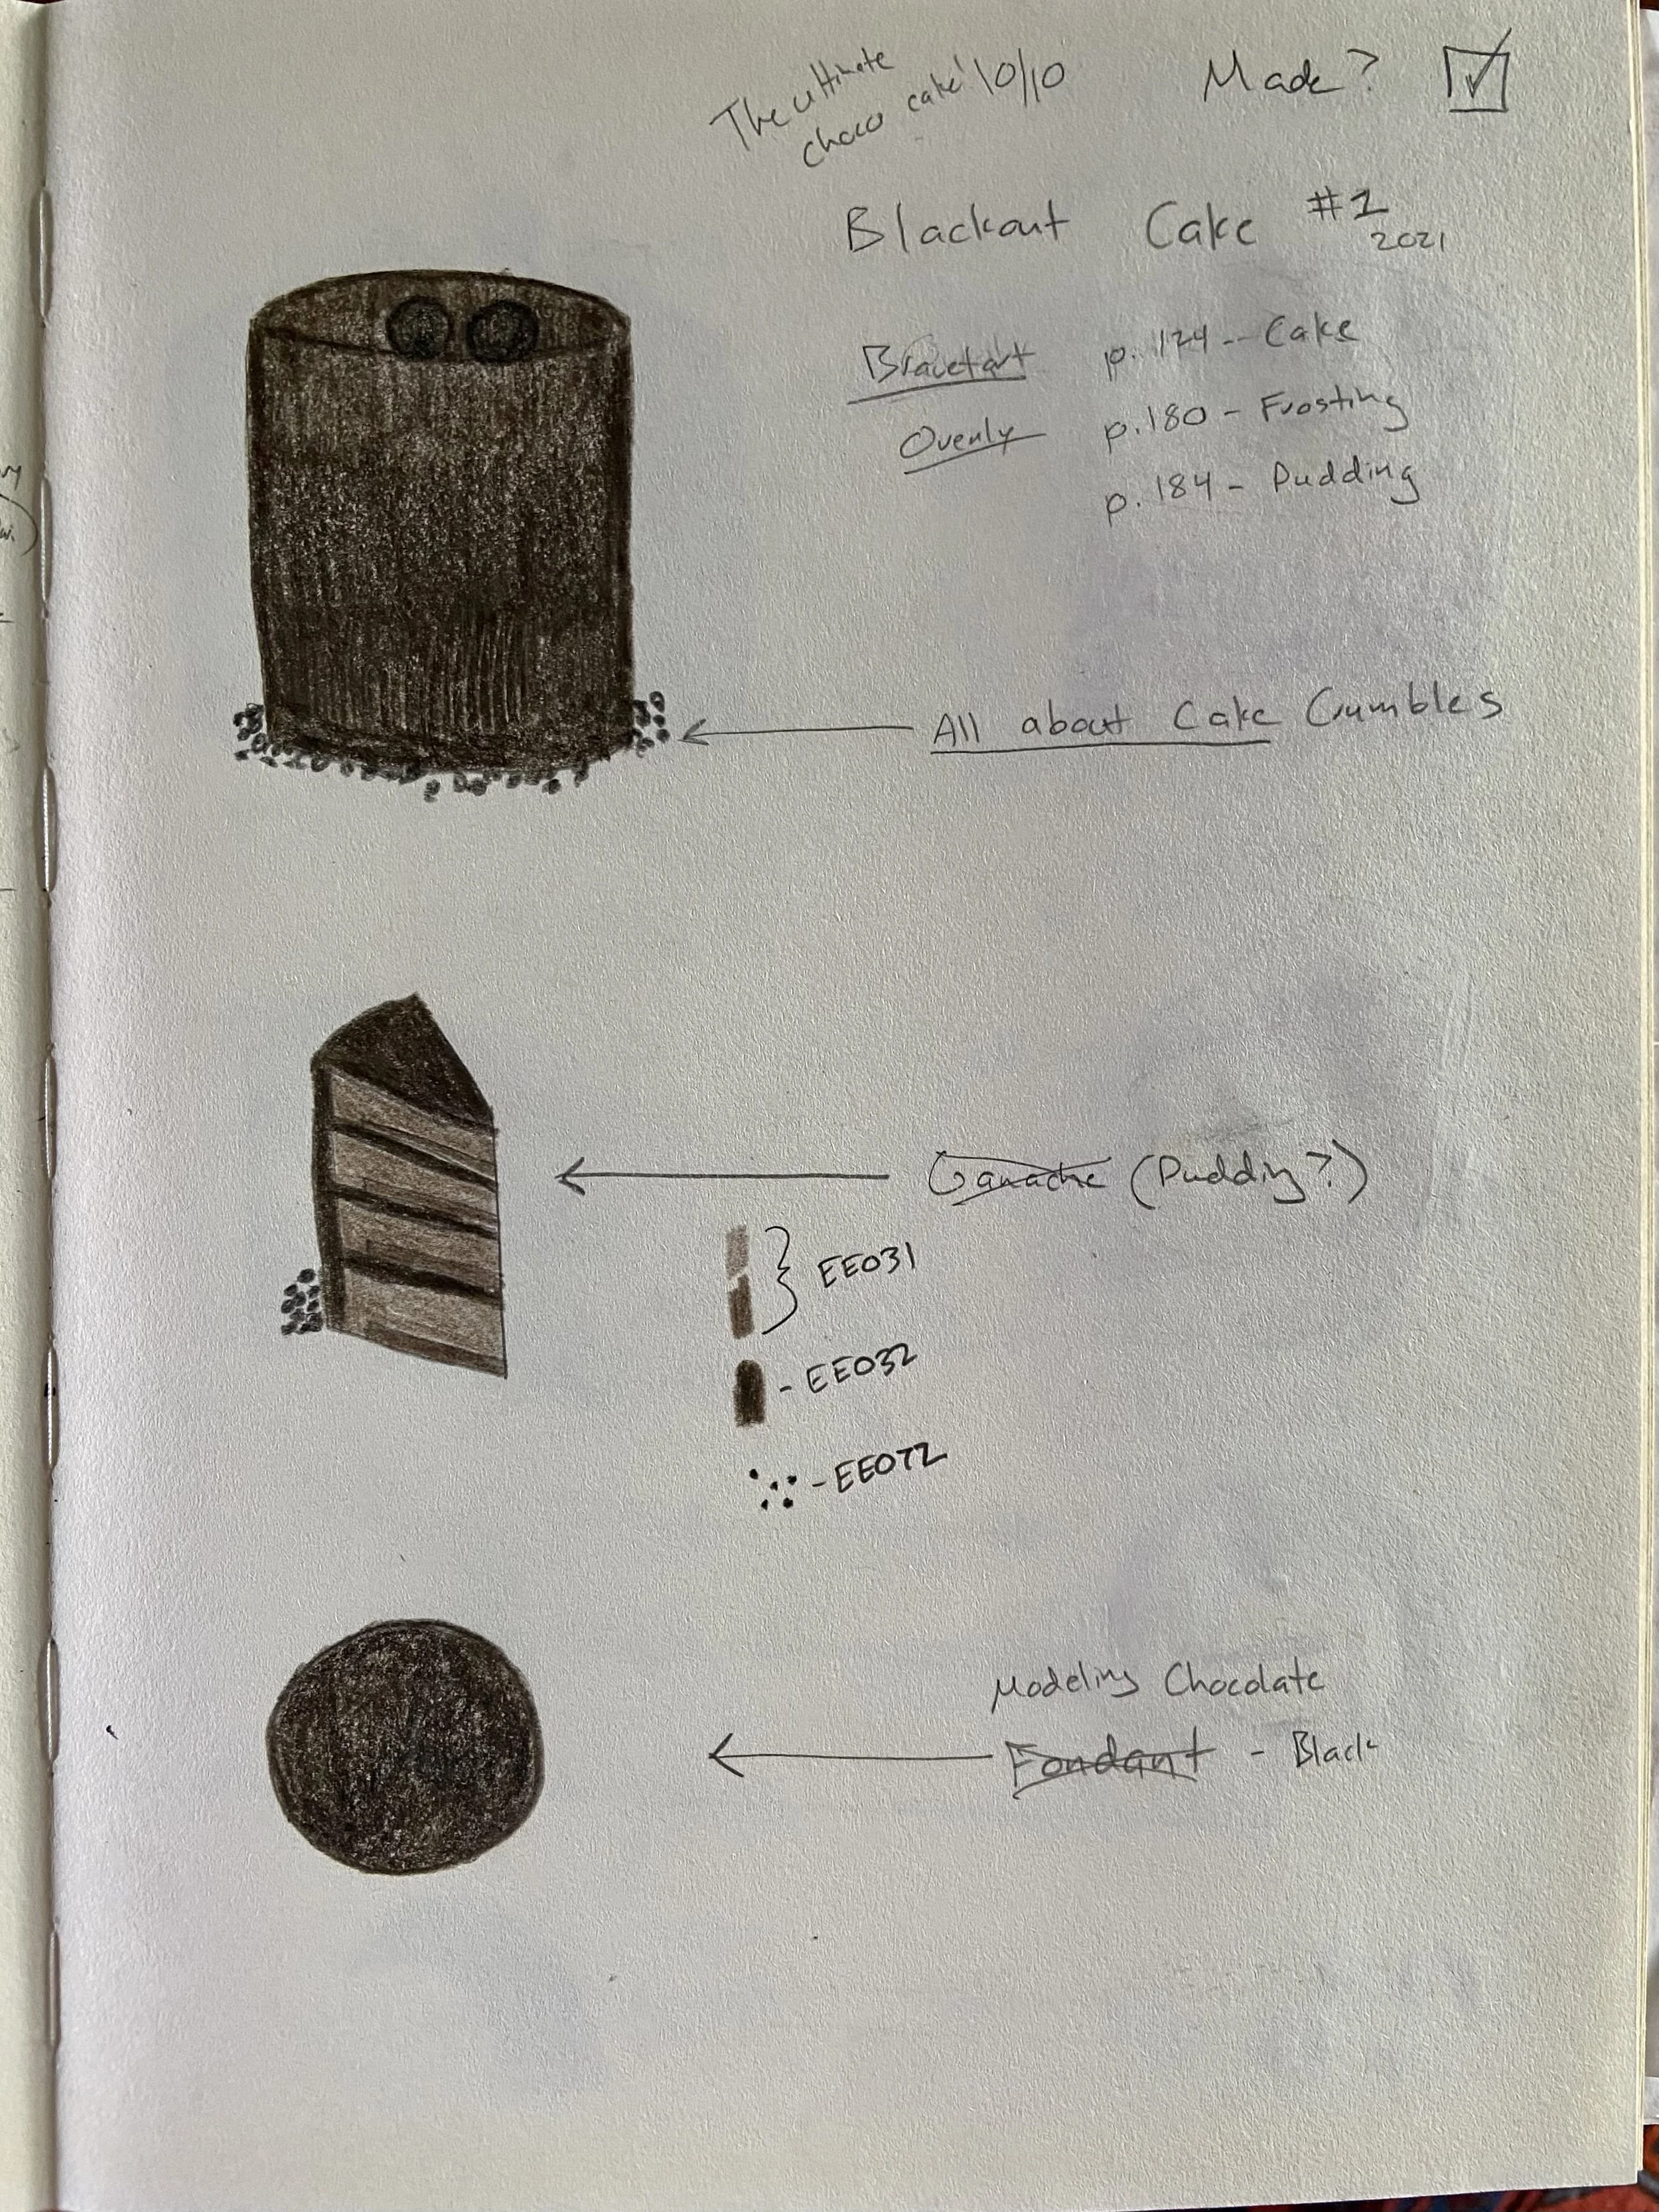 The ultimate
choco cake! 10/10
Made?
Blackout Cake #1
2021
Bravetart p. 124 -- Cake
Ovenly p. 180 - Frosting
p. 184 - Pudding
All about Cake Crumbles
Ganache (Pudding?)
EE031
- EE032
- EE072
Modeling Chocolate
Fondant - Black